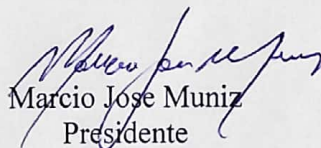 Marcio Jose Muniz
Presidente